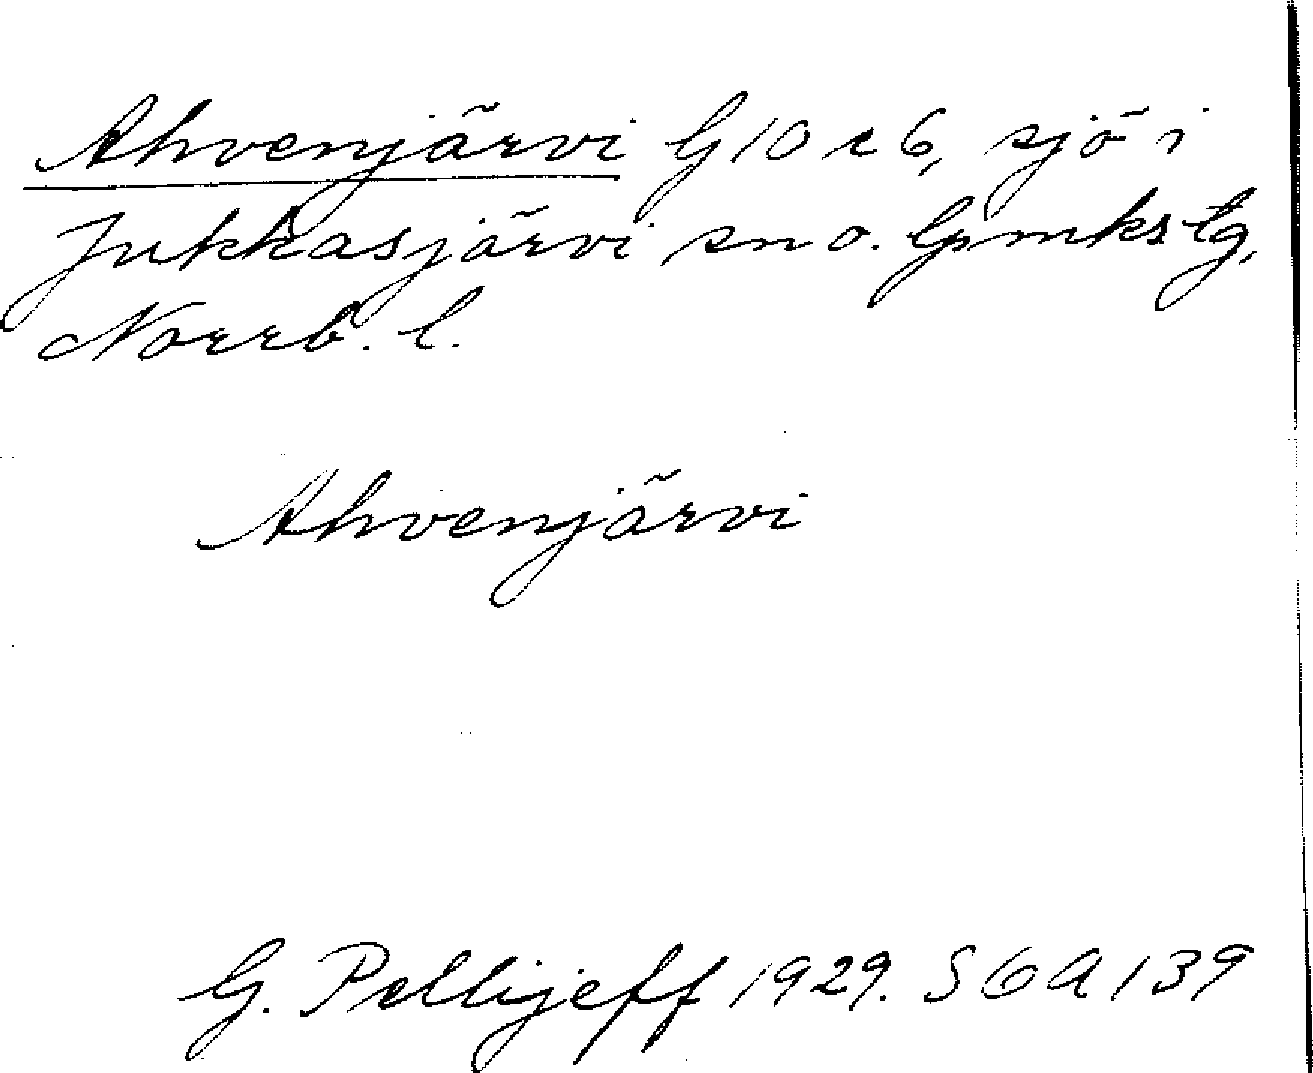 Ahvenjärvi G10 c 6, sjö i
Jukkasjärvi sn o. Lpmkstg,
Norrb. l.
Ahvenjärvi
G. Pellijeff 1929. SOA 139